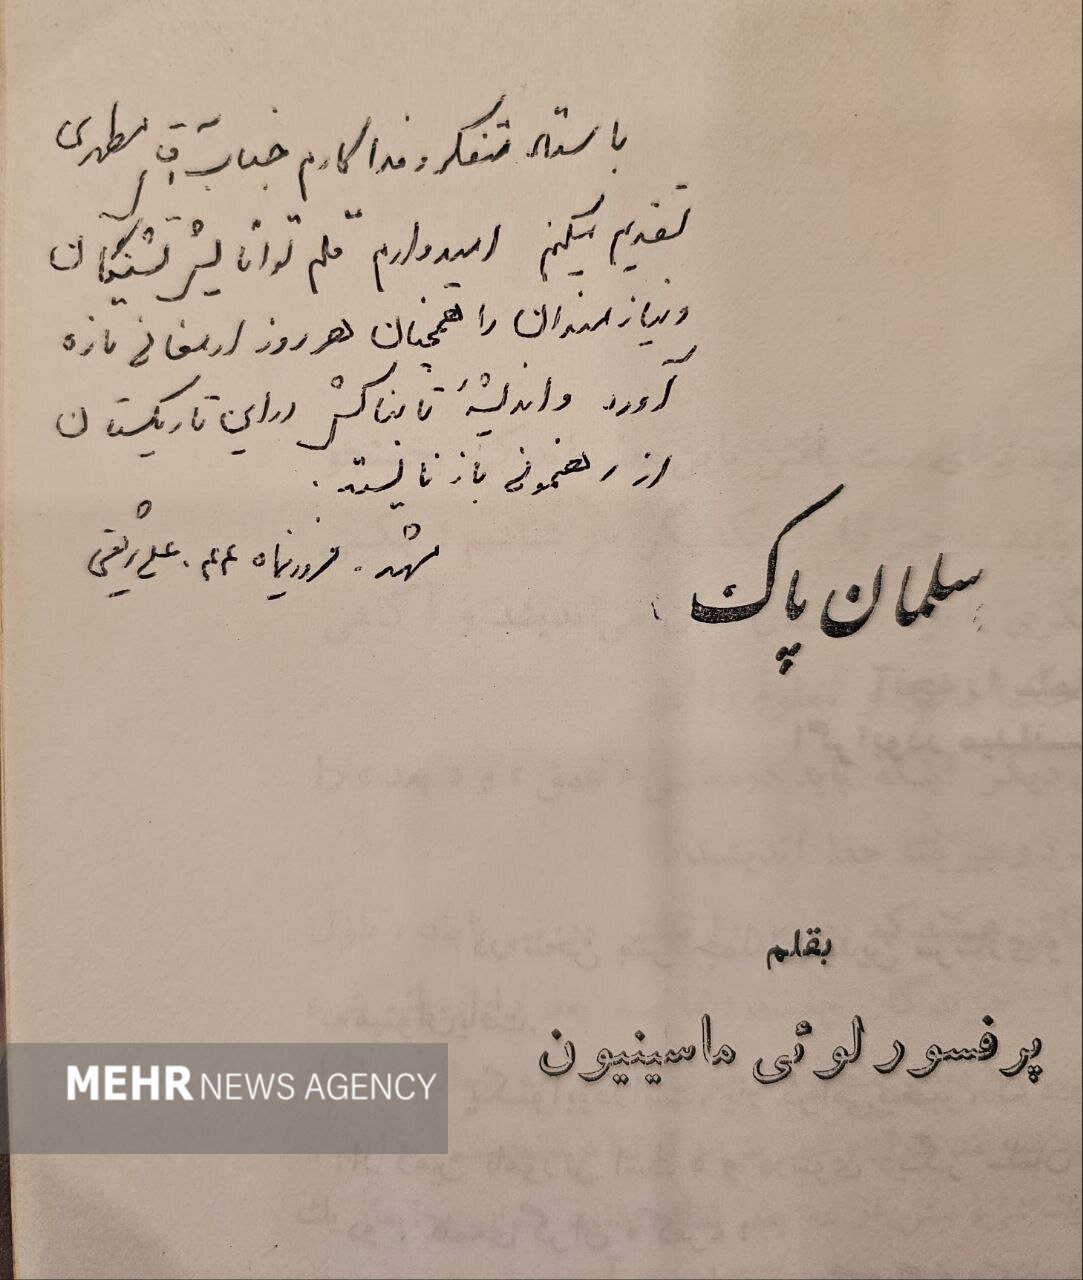 باستاد متفکر و فداکارم جناب آقای مطهری
تقدیم میکنم امیدوارم قلم توانایش تشنگان
و نیازمندان را همچنان هر روز ارمغانی تازه
آورد و اندیشهٔ تابناکش در این تاریکستان
از رهنمونی باز نایستد.
مشهد. فروردینماه ۴۷. علی شریعتی
سلمان پاک
بقلم
پرفسور لوئی ماسینیون
MEHR NEWS AGENCY